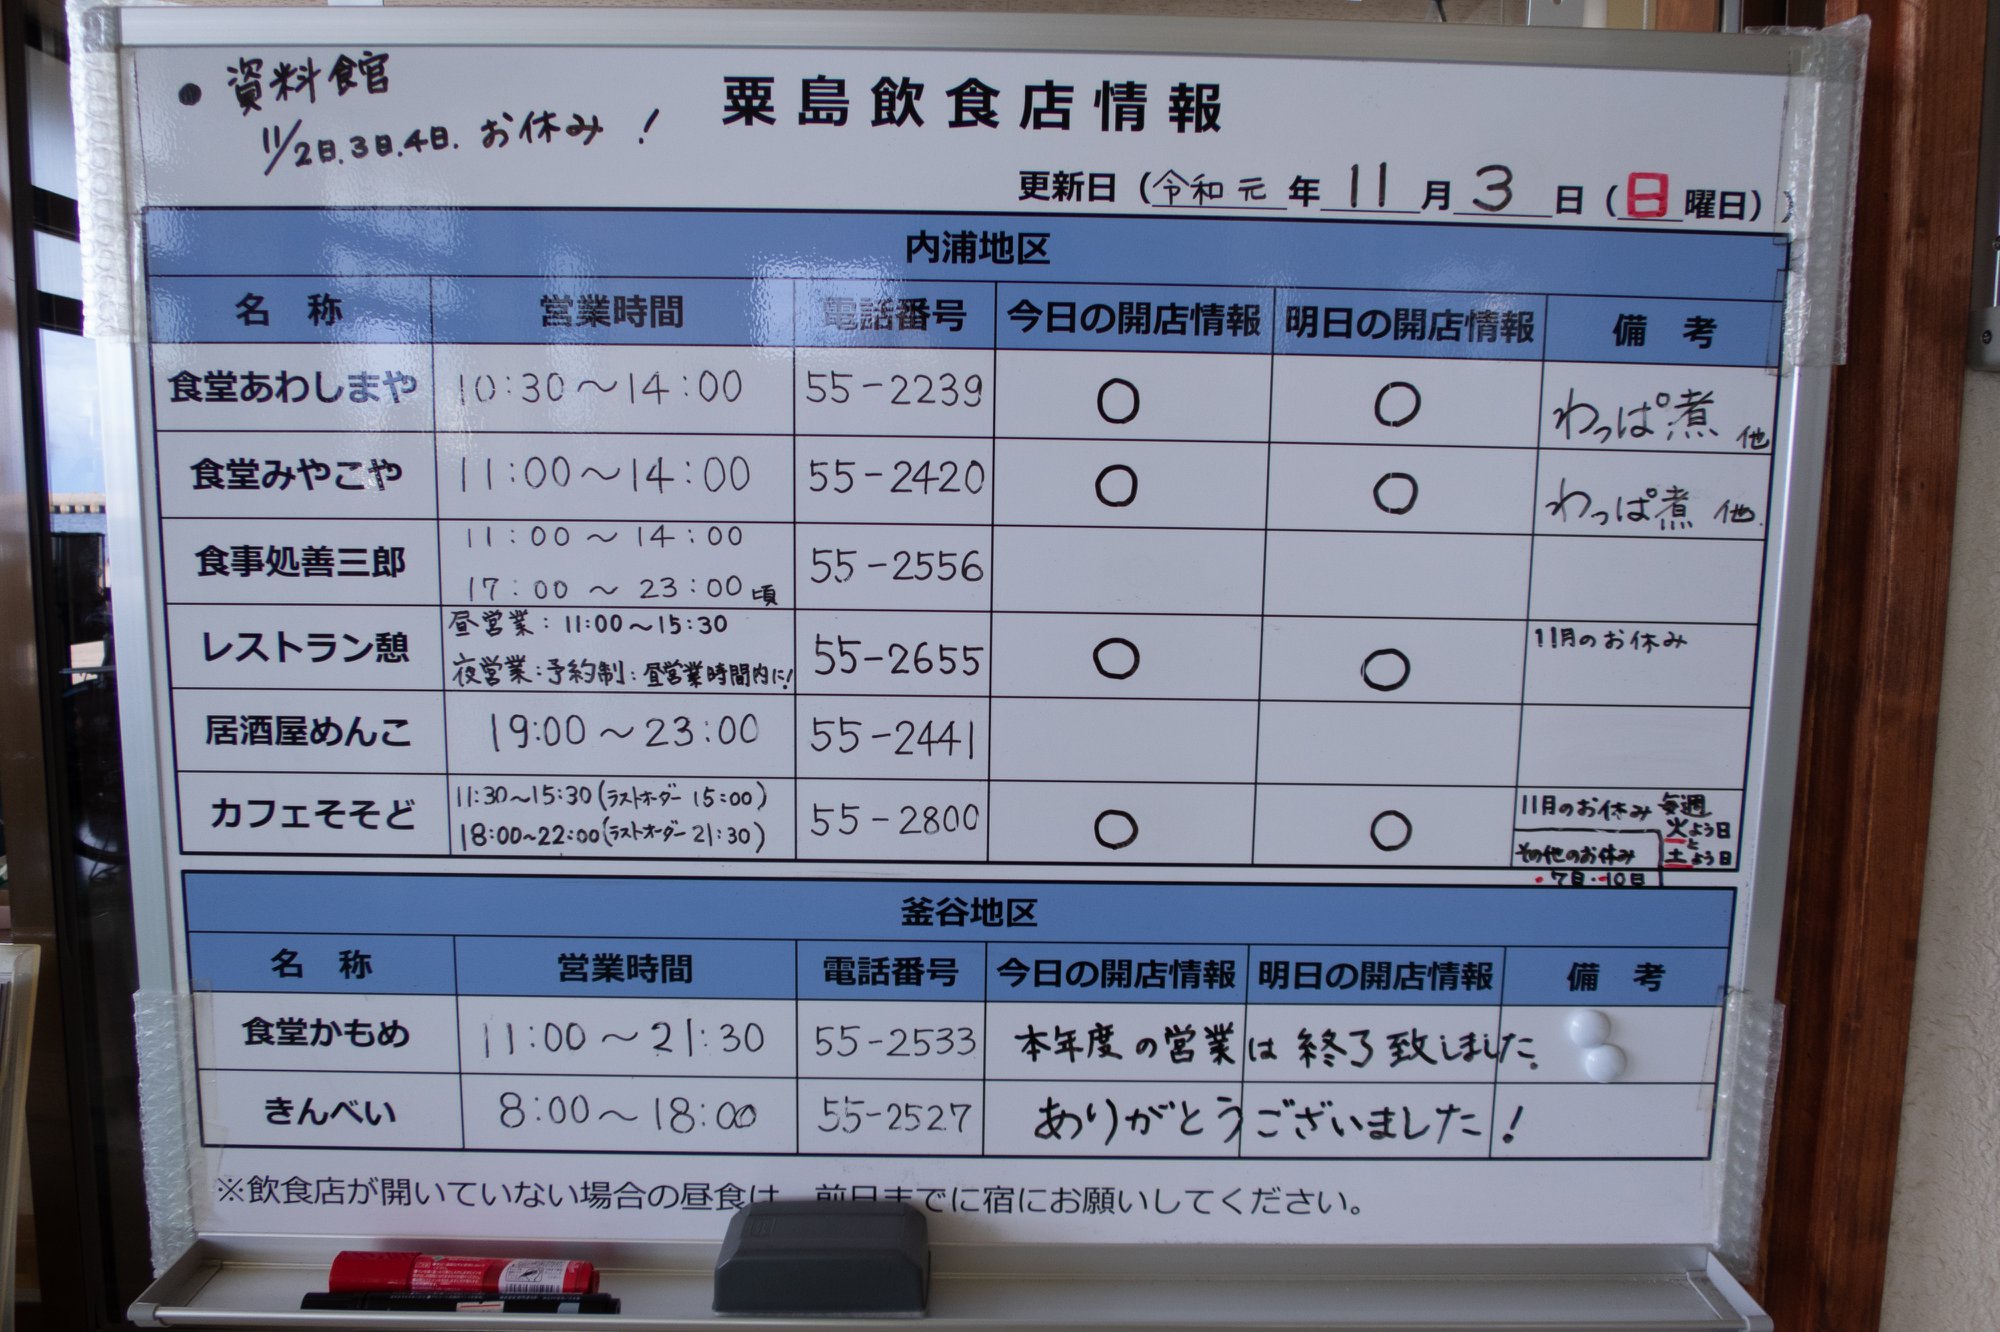 ● 資料館
11/2日.3日.4日. お休み!
粟島飲食店情報
更新日(令和元年11月3日(日曜日))
内浦地区
名 称 営業時間 電話番号 今日の開店情報 明日の開店情報 備 考
食堂あわしまや 10:30~14:00 55-2239 ○ ○ わっぱ煮 他
食堂みやこや 11:00~14:00 55-2420 ○ ○ わっぱ煮 他.
食事処善三郎 11:00~14:00 55-2556
17:00~23:00頃
レストラン憩 昼営業:11:00~15:30 55-2655 ○ ○ 11月のお休み
夜営業:予約制:昼営業時間内に!
居酒屋めんこ 19:00~23:00 55-2441
カフェそそど 11:30~15:30(ラストオーダー 15:00) 55-2800 ○ ○ 11月のお休み 毎週
18:00~22:00(ラストオーダー 21:30) 火よう日
と
その他のお休み 土よう日
・7日・10日
釜谷地区
名 称 営業時間 電話番号 今日の開店情報 明日の開店情報 備 考
食堂かもめ 11:00~21:30 55-2533 本年度の営業は終了致しました.
きんべい 8:00~18:00 55-2527 ありがとうございました!
※飲食店が開いていない場合の昼食は、前日までに宿にお願いしてください。